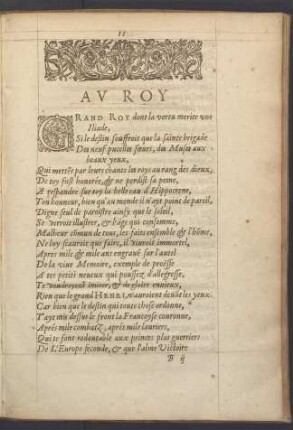 11
AV ROY
GRAND ROY dont la vertu merite vne
Iliade,
Si le destin souffroit que la sainte brigade
Des neuf pucelles sœurs, des Muses aux
beaux yeux,
Qui mettẽt par leurs chants les roys au rang des dieux,
De toy fust honorée, & ne perdist sa peine,
A respandre sur toy la belle eau d'Hippocrene,
Ton honneur, bien qu'au monde il n'ayt point de pareil,
Digne seul de paroistre ainsy que le soleil,
Se verroit illustrer, & l'âge qui consomme,
Malheur cõmun de tous, les faits ensemble & l'hõme,
Ne luy sçauroit que faire, il viuroit immortel,
Apres mile & mile ans engraué sur l'autel
De la viue Memoire, exemple de proësse
A tes petits neueux qui poussez d'allegresse,
Te voudroyent imiter, & de gloire enuieux,
Rien que le grand HENRI, n'auroient deuãt les yeux.
Car bien que le destin qui toute chose ordonne,
T'ayt mis dessus le front la Françoyse couronne,
Aprés mile combatz, aprés mile lauriers,
Qui te font redoutable aux princes plus guerriers
De L'Europe feconde, & que l'alme Victoire
B ij